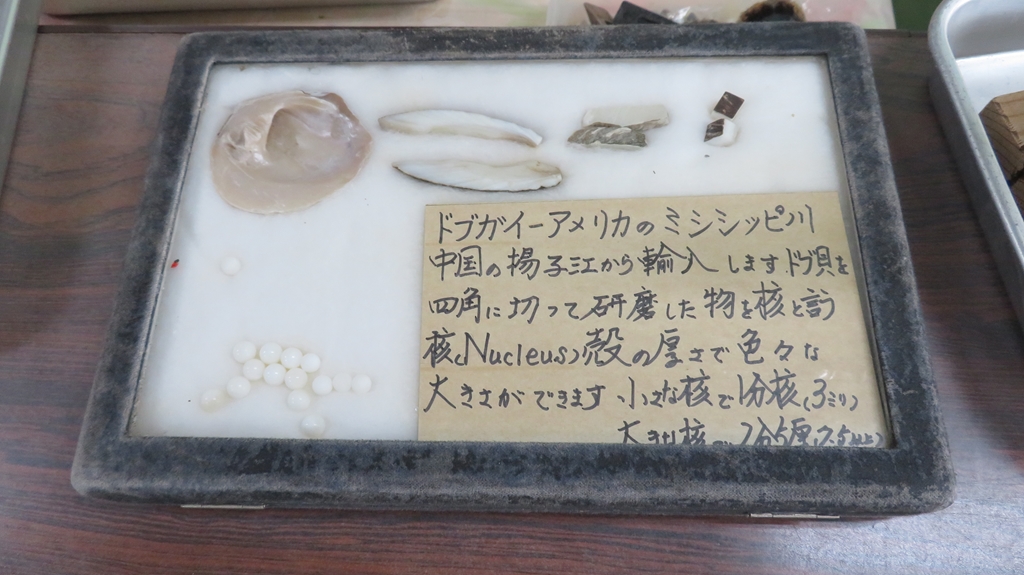 ドブガイーアメリカのミシシッピ川
中国の揚子江から輸入します.ドブ貝を
四角に切って研磨した物を核と言う
核(Nucleus)殻の厚さで色々な
大きさができます.小さな核で1分核(3ミリ)
大きな核 7分5厘(7.5